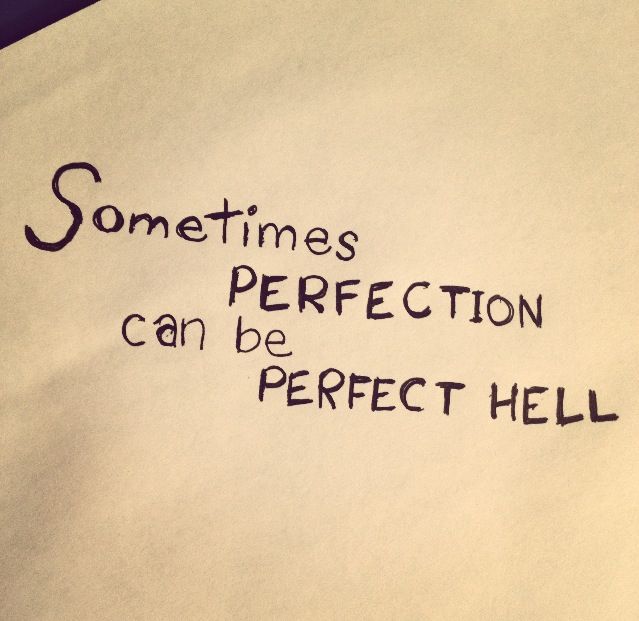 Sometimes
PERFECTION
can be
PERFECT HELL